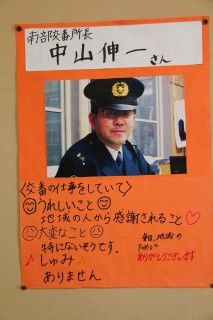 南部交番所長
中山伸一さん
〈交番の仕事をしていて〉
うれしいこと
地域の人から感謝されること
大変なこと
特にないそうです。
しゅみ
ありません
毎日、地域の
ために
ありがとうございます